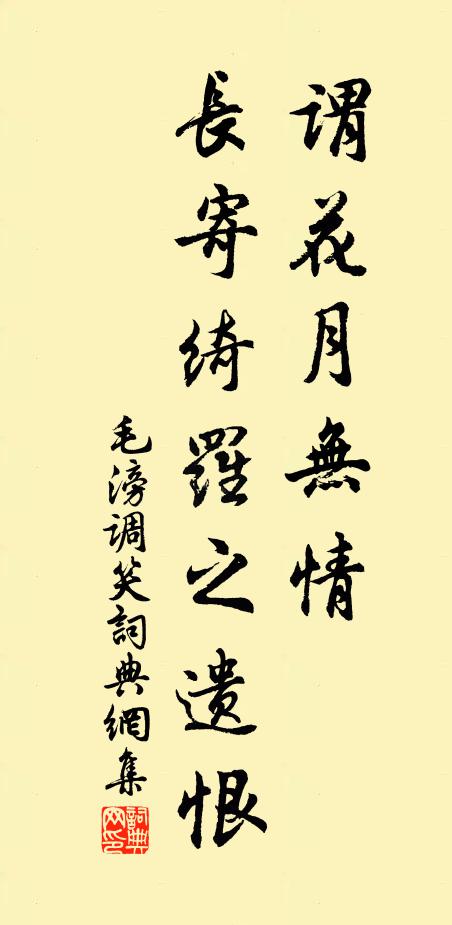 謂花月無情
長寄綺羅之遗恨
毛滂调笑詞典網集
詞典网印